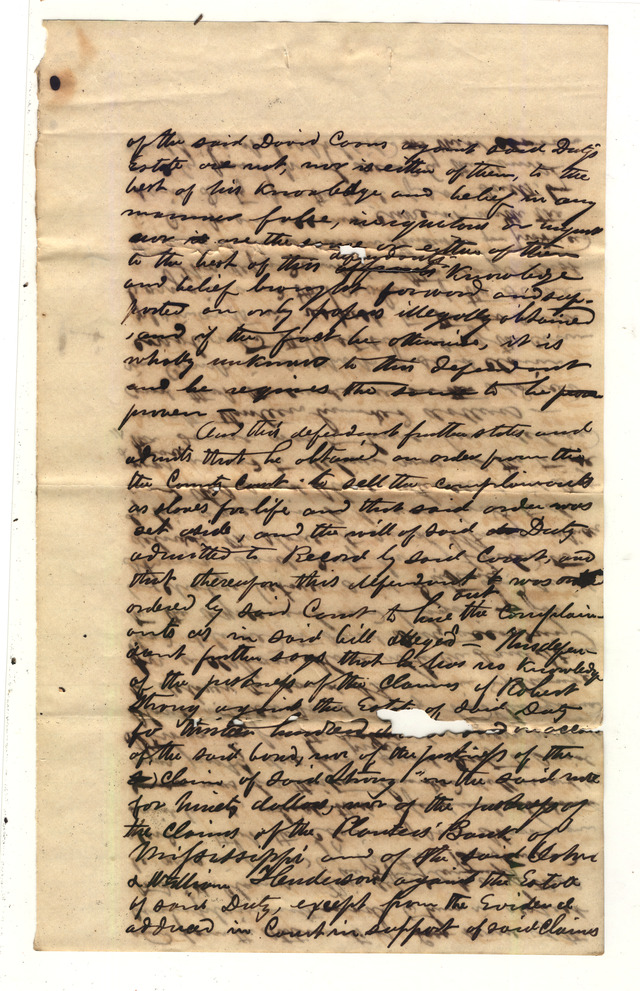 of the said David Coons against said Duty's
Estate are not, nor is either of them, to the
best of his Knowledge and belief in any
manner false, iniquitous or unjust
nor is are the same or either of them
to the best of this defendant's Knowledge
and belief brought forward and sup-
ported on only papers illegally obtained
, and if the fact be otherwise, it is
wholly unknown to this defendant
and he requires the same to be
proven
And this defendant further states and
admits that he obtained an order from this
the County Court to sell the complainants
as slaves for life and that said order was
set aside, and the will of said Duty
admitted to Record by said Court, and
that thereupon this defendant was
ordered by said Court to hire out the complain-
ants as in said bill alleged — This defen-
dant further says that he has no knowledge
of the justness of the claims of Robert
Strong against the Estate of said Duty
for Nineteen hundred on account
of the said bond, nor of the justness of the
claim of said Strong on the said note
for Ninety dollars, nor of the justness of
the claims of the Planters' Bank of
Mississippi and of the said John
& William Henderson against the Estate
of said Duty, except from the Evidence
adduced in Court in support of said Claims